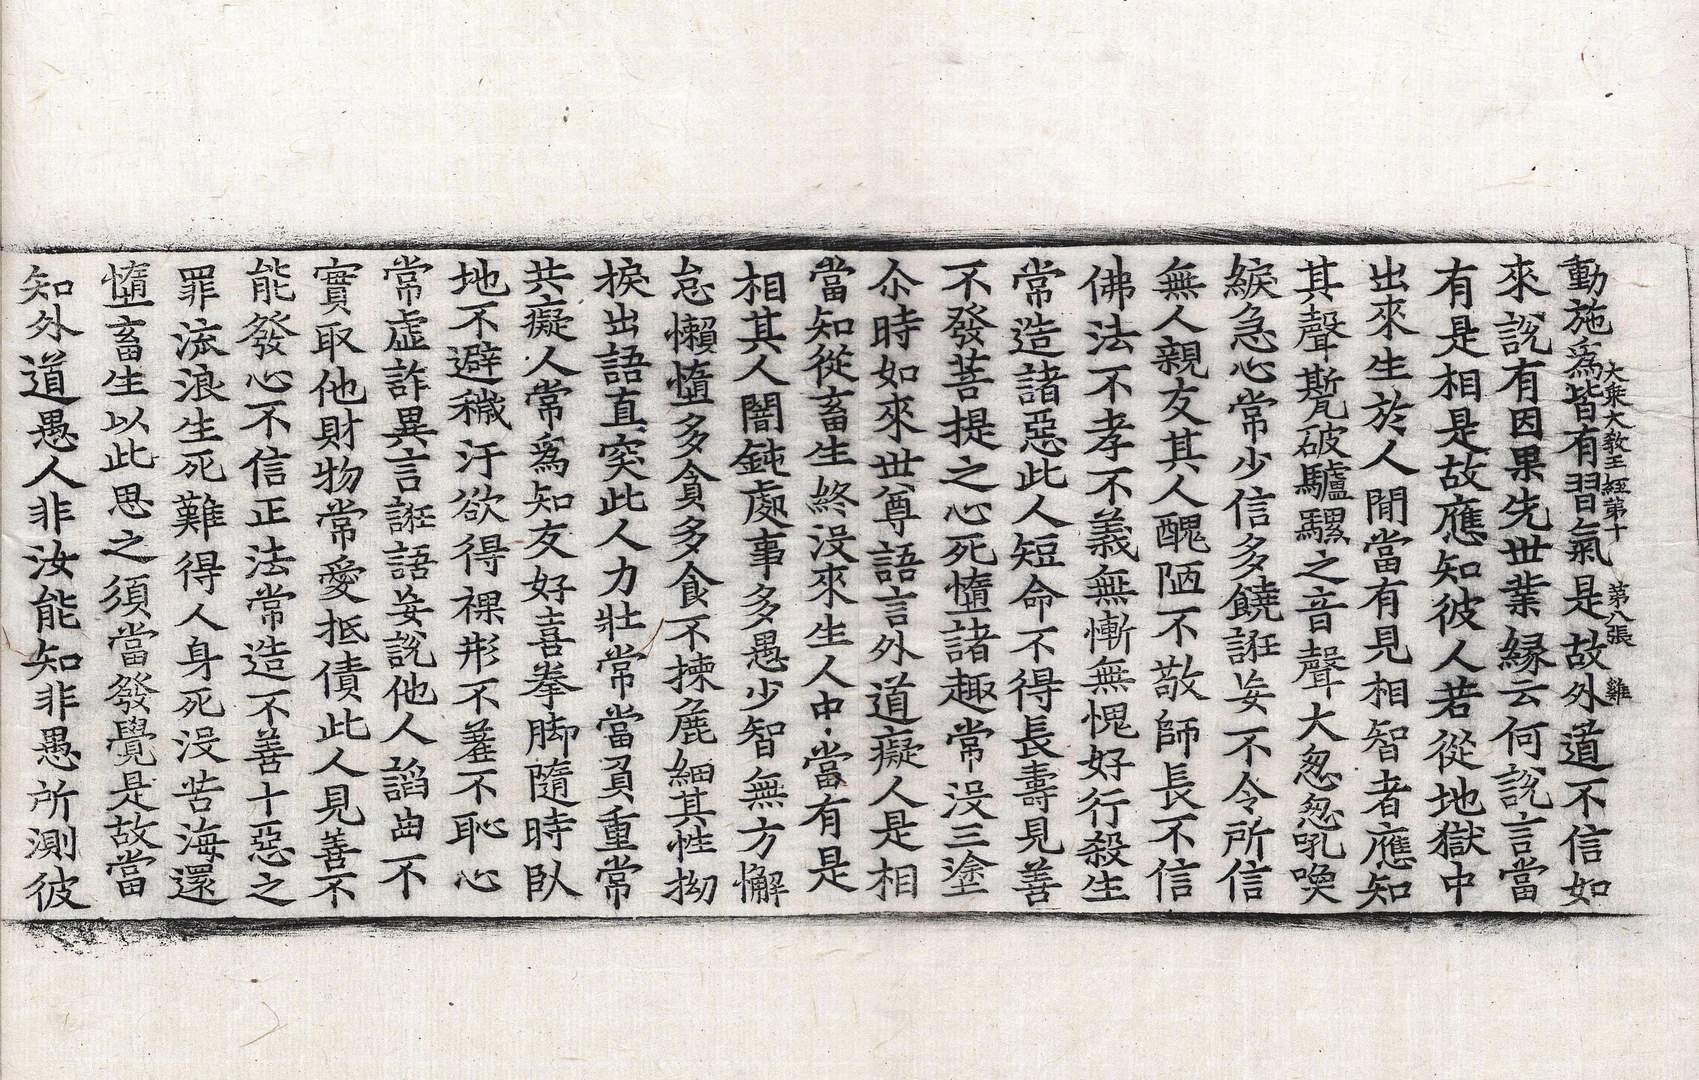 大乘大教王經第十　第八張　雞
動施爲皆有習氣是故外道不信如
來說有因果先世業緣云何說言當
有是相是故應知彼人若從地獄中
出來生於人間當有見相智者應知
其聲嘶破驢騾之音聲大忩忩吼喚
綟急心常少信多饒誑妄不令所信
無人親友其人醜陋不敬師長不信
佛法不孝不義無慚無愧好行殺生
常造諸惡此人短命不得長壽見善
不發菩提之心死墮諸趣常没三塗
尒時如來世尊語言外道癡人是相
當知從畜生終没來生人中當有是
相其人闇鈍處事多愚少智無方懈
怠懶惰多貪多食不揀麁細其性拗
捩出語直突此人力壯常當負重常
共癡人常爲知友好喜拳脚隨時臥
地不避穢汙欲得裸形不羞不恥心
常虛詐異言誑語妄說他人諂曲不
實取他財物常愛抵債此人見善不
能發心不信正法常造不善十惡之
罪流浪生死難得人身死没苦海還
墮畜生以此思之須當發覺是故當
知外道愚人非汝能知非愚所測彼